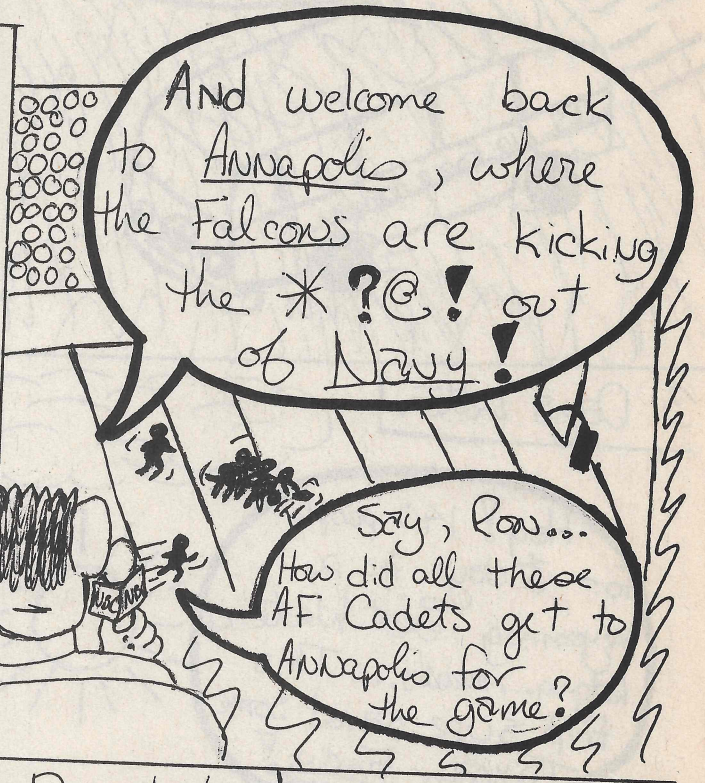 And welcome back
to Annapolis, where
the Falcons are kicking
the *?@! out
of Navy!
Say, Ron...
How did all these
AF Cadets get to
Annapolis for
the game?
NBC